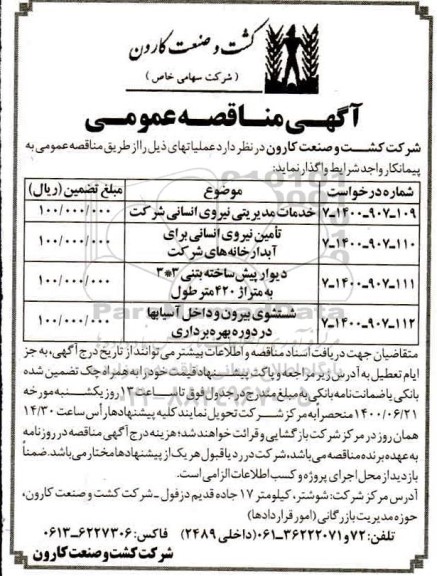 کشت و صنعت کارون
( شرکت سهامی خاص )
آگهـی منـاقصـه عمومـی
شرکت کشـت و صنعت کارون در نظر دارد عملیاتهای ذیل را از طریق مناقصه عمومی به
پیمانکار واجد شرایط واگذار نماید:
شماره درخواست موضوع مبلغ تضمین (ریال)
۷-۱۴۰۰-۹۰۷-۱۰۹ خدمات مدیریتی نیروی انسانی شرکت ۱۰۰/۰۰۰/۰۰۰
۷-۱۴۰۰-۹۰۷-۱۱۰ تأمین نیروی انسانی برای آبدارخانه‌های شرکت ۱۰۰/۰۰۰/۰۰۰
۷-۱۴۰۰-۹۰۷-۱۱۱ دیوار پیش ساخته بتنی ۳*۳ به متراژ ۴۲۰ متر طول ۱۰۰/۰۰۰/۰۰۰
۷-۱۴۰۰-۹۰۷-۱۱۲ شستشوی بیرون و داخل آسیابها در دوره بهره برداری ۱۰۰/۰۰۰/۰۰۰
متقاضیان جهت دریافت اسناد مناقصه و اطلاعات بیشتر می توانند از تاریخ درج آگهی، به جز
ایام تعطیل به آدرس زیر مراجعه و پاکت پیشنهاد قیمت خود را به همراه چک تضمین شده
بانکی یا ضمانت نامه بانکی با مبلغ مندرج در جدول فوق تا ساعت ۱۳ روز یکشنبه مورخه
۱۴۰۰/۰۶/۲۱ منحصرا به مرکز شرکت تحویل نمایند کلیه پیشنهادها راس ساعت ۱۴/۳۰
همان روز در مرکز شرکت بازگشایی و قرائت خواهند شد؛ هزینه درج آگهی مناقصه در روزنامه
به عهده برنده مناقصه می باشد، شرکت در رد یا قبول هر یک از پیشنهادها مختار می باشد. ضمناً
بازدید از محل اجرای پروژه و کسب اطلاعات الزامی است.
آدرس مرکز شرکت: شوشتر، کیلومتر ۱۷ جاده قدیم دزفول - شرکت کشت و صنعت کارون،
حوزه مدیریت بازرگانی (امور قراردادها)
تلفن: ۷۲ و ۳۶۲۲۲۰۷۱-۰۶۱ (داخلی ۲۴۸۹) فاکس: ۶۲۲۷۳۰۶-۰۶۱۳
شرکت کشت و صنعت کارون